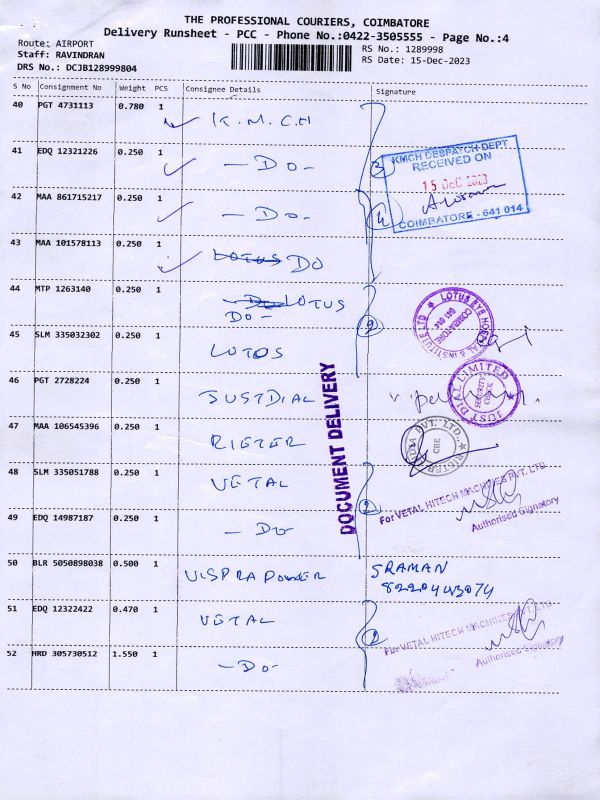 THE PROFESSIONAL COURIERS, COIMBATORE
Delivery Runsheet - PCC - Phone No.:0422-3505555 - Page No.:4
Route: AIRPORT
Staff: RAVINDRAN
DRS No.: DCJB128999804
RS No.: 1289998
RS Date: 15-Dec-2023
S No Consignment No Weight PCS Consignee Details Signature
40 PGT 4731113 0.780 1 K.M.C.H
41 EDQ 12321226 0.250 1 - DO -
KMCH DESPATCH DEPT
RECEIVED ON
15 DEC 2023
COIMBATORE - 641 014
42 MAA 861715217 0.250 1 - DO -
43 MAA 101578113 0.250 1 LOTUS DO
44 MTP 1263140 0.250 1 - DO LOTUS
DO -
LOTUS EYE HOSPITAL & INSTITUTE LTD
COIMBATORE
641 014
45 SLM 335032302 0.250 1 LOTOS
46 PGT 2728224 0.250 1 JUSTDIAL
JUST DIAL LIMITED
SECURITY
47 MAA 106545396 0.250 1 RIETER
CBE
DOCUMENT DELIVERY
48 SLM 335051788 0.250 1 VETAL
For VETAL HITECH MACHINES PVT. LTD
Authorised Signatory
49 EDQ 14987187 0.250 1 - DO
50 BLR 5050898038 0.500 1 VISPRA POWDER SRAMAN
8220443074
51 EDQ 12322422 0.470 1 VETAL
For VETAL HITECH MACHINES PVT. LTD
Authorised Signatory
52 HRD 305730512 1.550 1 - DO -